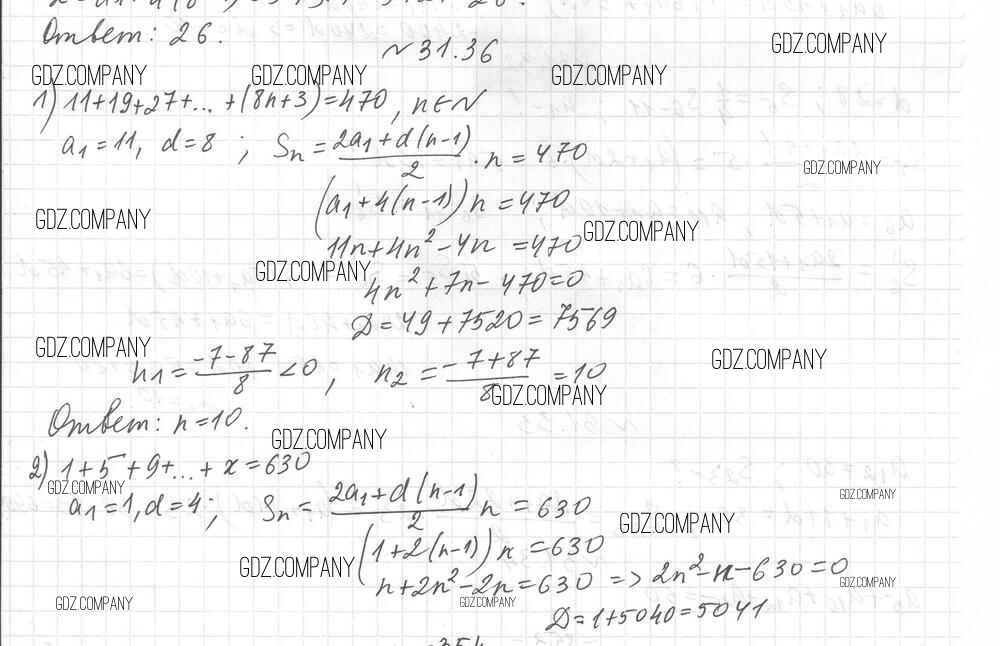 Ответ: 26.
~ 31.36
GDZ.COMPANY
GDZ.COMPANY GDZ.COMPANY GDZ.COMPANY
1) 11+19+27+...+(8n+3)=470, n∈N
a₁=11, d=8 ; Sₙ = (2a₁+d(n-1))/2 · n = 470
GDZ.COMPANY
(a₁+4(n-1))n=470
GDZ.COMPANY
11n+4n²-4n=470
GDZ.COMPANY
GDZ.COMPANY
4n²+7n-470=0
D=49+7520=7569
GDZ.COMPANY
GDZ.COMPANY
n₁ = (-7-87)/8 <0, n₂ = (-7+87)/8 =10
GDZ.COMPANY
Ответ: n=10.
GDZ.COMPANY
2) 1+5+9+...+x=630
GDZ.COMPANY
a₁=1, d=4; Sₙ = (2a₁+d(n-1))/2 n = 630
GDZ.COMPANY
GDZ.COMPANY
(1+2(n-1))n=630
GDZ.COMPANY
n+2n²-2n=630 => 2n²-n-630=0
GDZ.COMPANY
GDZ.COMPANY
GDZ.COMPANY
D=1+5040=5041